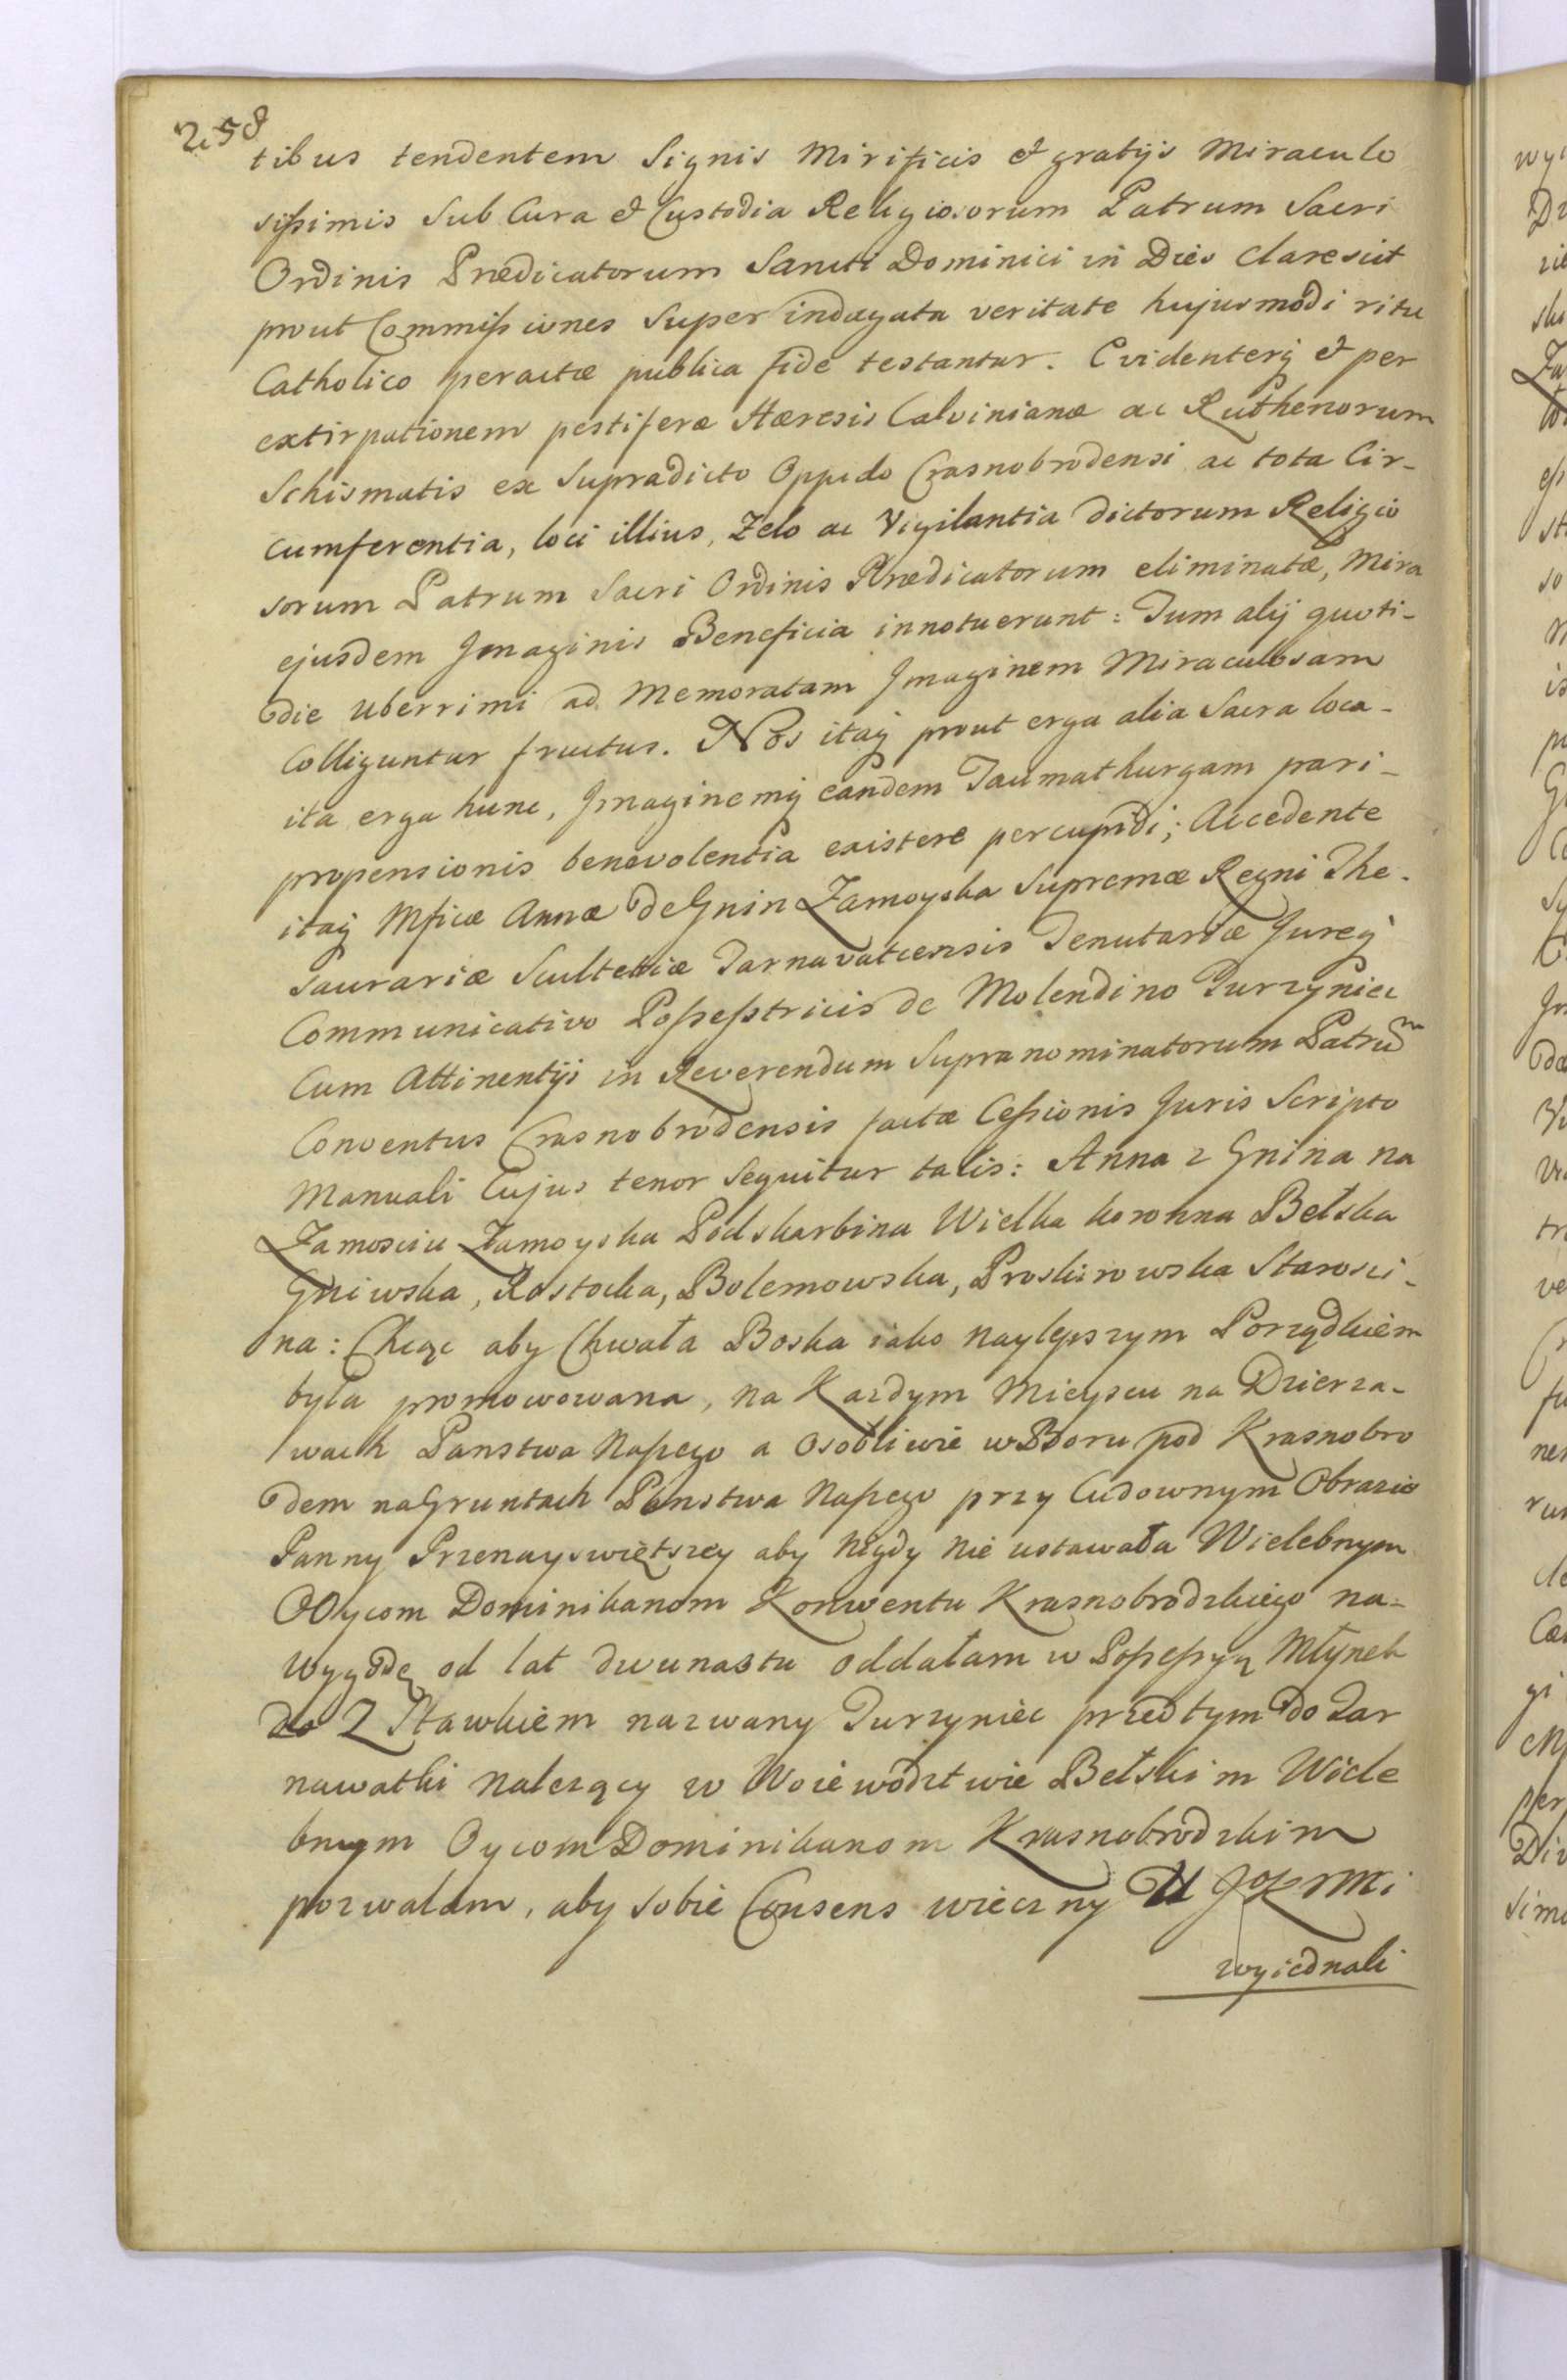 258
tibus tendentem Signis Mirificis & gratijs Miraculo
sißimis Sub Cura & Custodia Religiosorum Patrum Sacri
Ordinis Prædicatorum Sancti Dominici in Dies Clarescit
prout Commißiones Super indagata veritate hujusmodi ritu
Catholico peractæ publica fide testantur. Evidenterq; & per
extirpationem pestiferæ Hæresis Calvinianæ ac Ruthenorum
Schismatis ex Supradicto Oppido Crasnobrodensi ac tota Cir-
cumferentia, loci illius, Zelo ac Vigilantia dictorum Religio
sorum Patrum Sacri Ordinis Prædicatorum eliminatæ, Mira
ejusdem Imaginis Beneficia innotuerunt: Tum alij quoti-
die Uberrimi ad Memoratam Imaginem Miraculosam
Colliguntur fructus. Nos itaq; prout erga alia Sacra loca-
ita erga hunc, Imaginemq; eandem Taumathurgam pari-
propensionis benevolentia existere percupidi; Accedente
itaq; Mficæ Annæ de Gnin Zamoyska Supremæ Regni The-
saurariæ Scultetiæ Tarnavatcensis Tenutariæ Jureq;
Communicativo Poßeßtricis de Molendino Turzyniec
Cum Attinentijs in Reverendum Supranominatorum Patrum
Conventus Crasnobrodensis factæ Ceßionis Juris Scripto
Manuali Cujus tenor Sequitur talis: Anna z Gnina na
Zamosciu Zamoyska Podskarbina Wielka koronna Bełska
Gniwska, Rostocka, Bolemowska, Proskirowska Starosci-
na: Chcąc aby Chwała Boska iako naylepszym Porządkiem
była promowowana, na Kazdym Mieyscu na Dzierza-
wach Panstwa Naßego a Osobliwie w Boru pod Krasnobro
dem na Gruntach Panstwa Naßego przy Cudownym Obrazie
Panny Przenayswiętszey aby Nigdy Nie ustawała Wielebnym
OOycom Dominikanom Konwentu Krasnobrodzkiego na-
Wygodę od lat dwunastu oddałam w Poßeßyą Młynek
do Z Stawkiem nazwany Turzyniec przedtym do Tar
nawatki Nalezący w Woiewodztwie Bełskim Wiele
bnym Oycom Dominikanom Krasnobrodzkim
pozwalam, aby Sobie Consens wieczny U JoKMMi
wyiednali